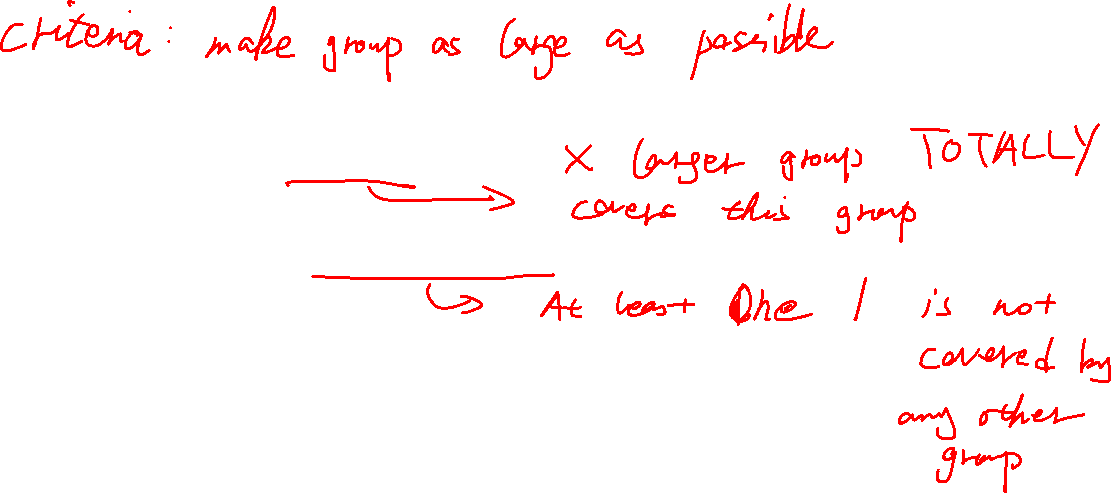 Criteria: make group as large as possible
X larger group TOTALLY
covers this group
At least One 1 is not
covered by
any other
group